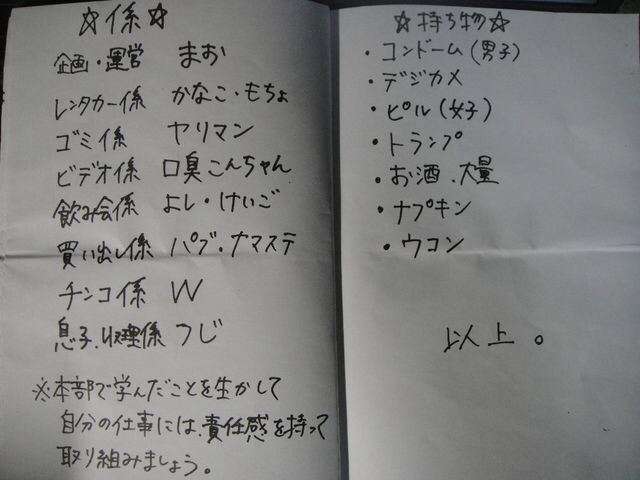 ☆係☆
企画・運営 まお
レンタカー係 かなこ・もちょ
ゴミ係 ヤリマン
ビデオ係 口臭こんちゃん
飲み会係 よし・けいご
買い出し係 パブ・ナマステ
チンコ係 W
息子、収理係 つじ
※本部で学んだことを生かして
自分の仕事には、責任感を持って
取り組みましょう。
☆持ち物☆
・コンドーム(男子)
・デジカメ
・ピル(女子)
・トランプ
・お酒、大量
・ナプキン
・ウコン
以上。